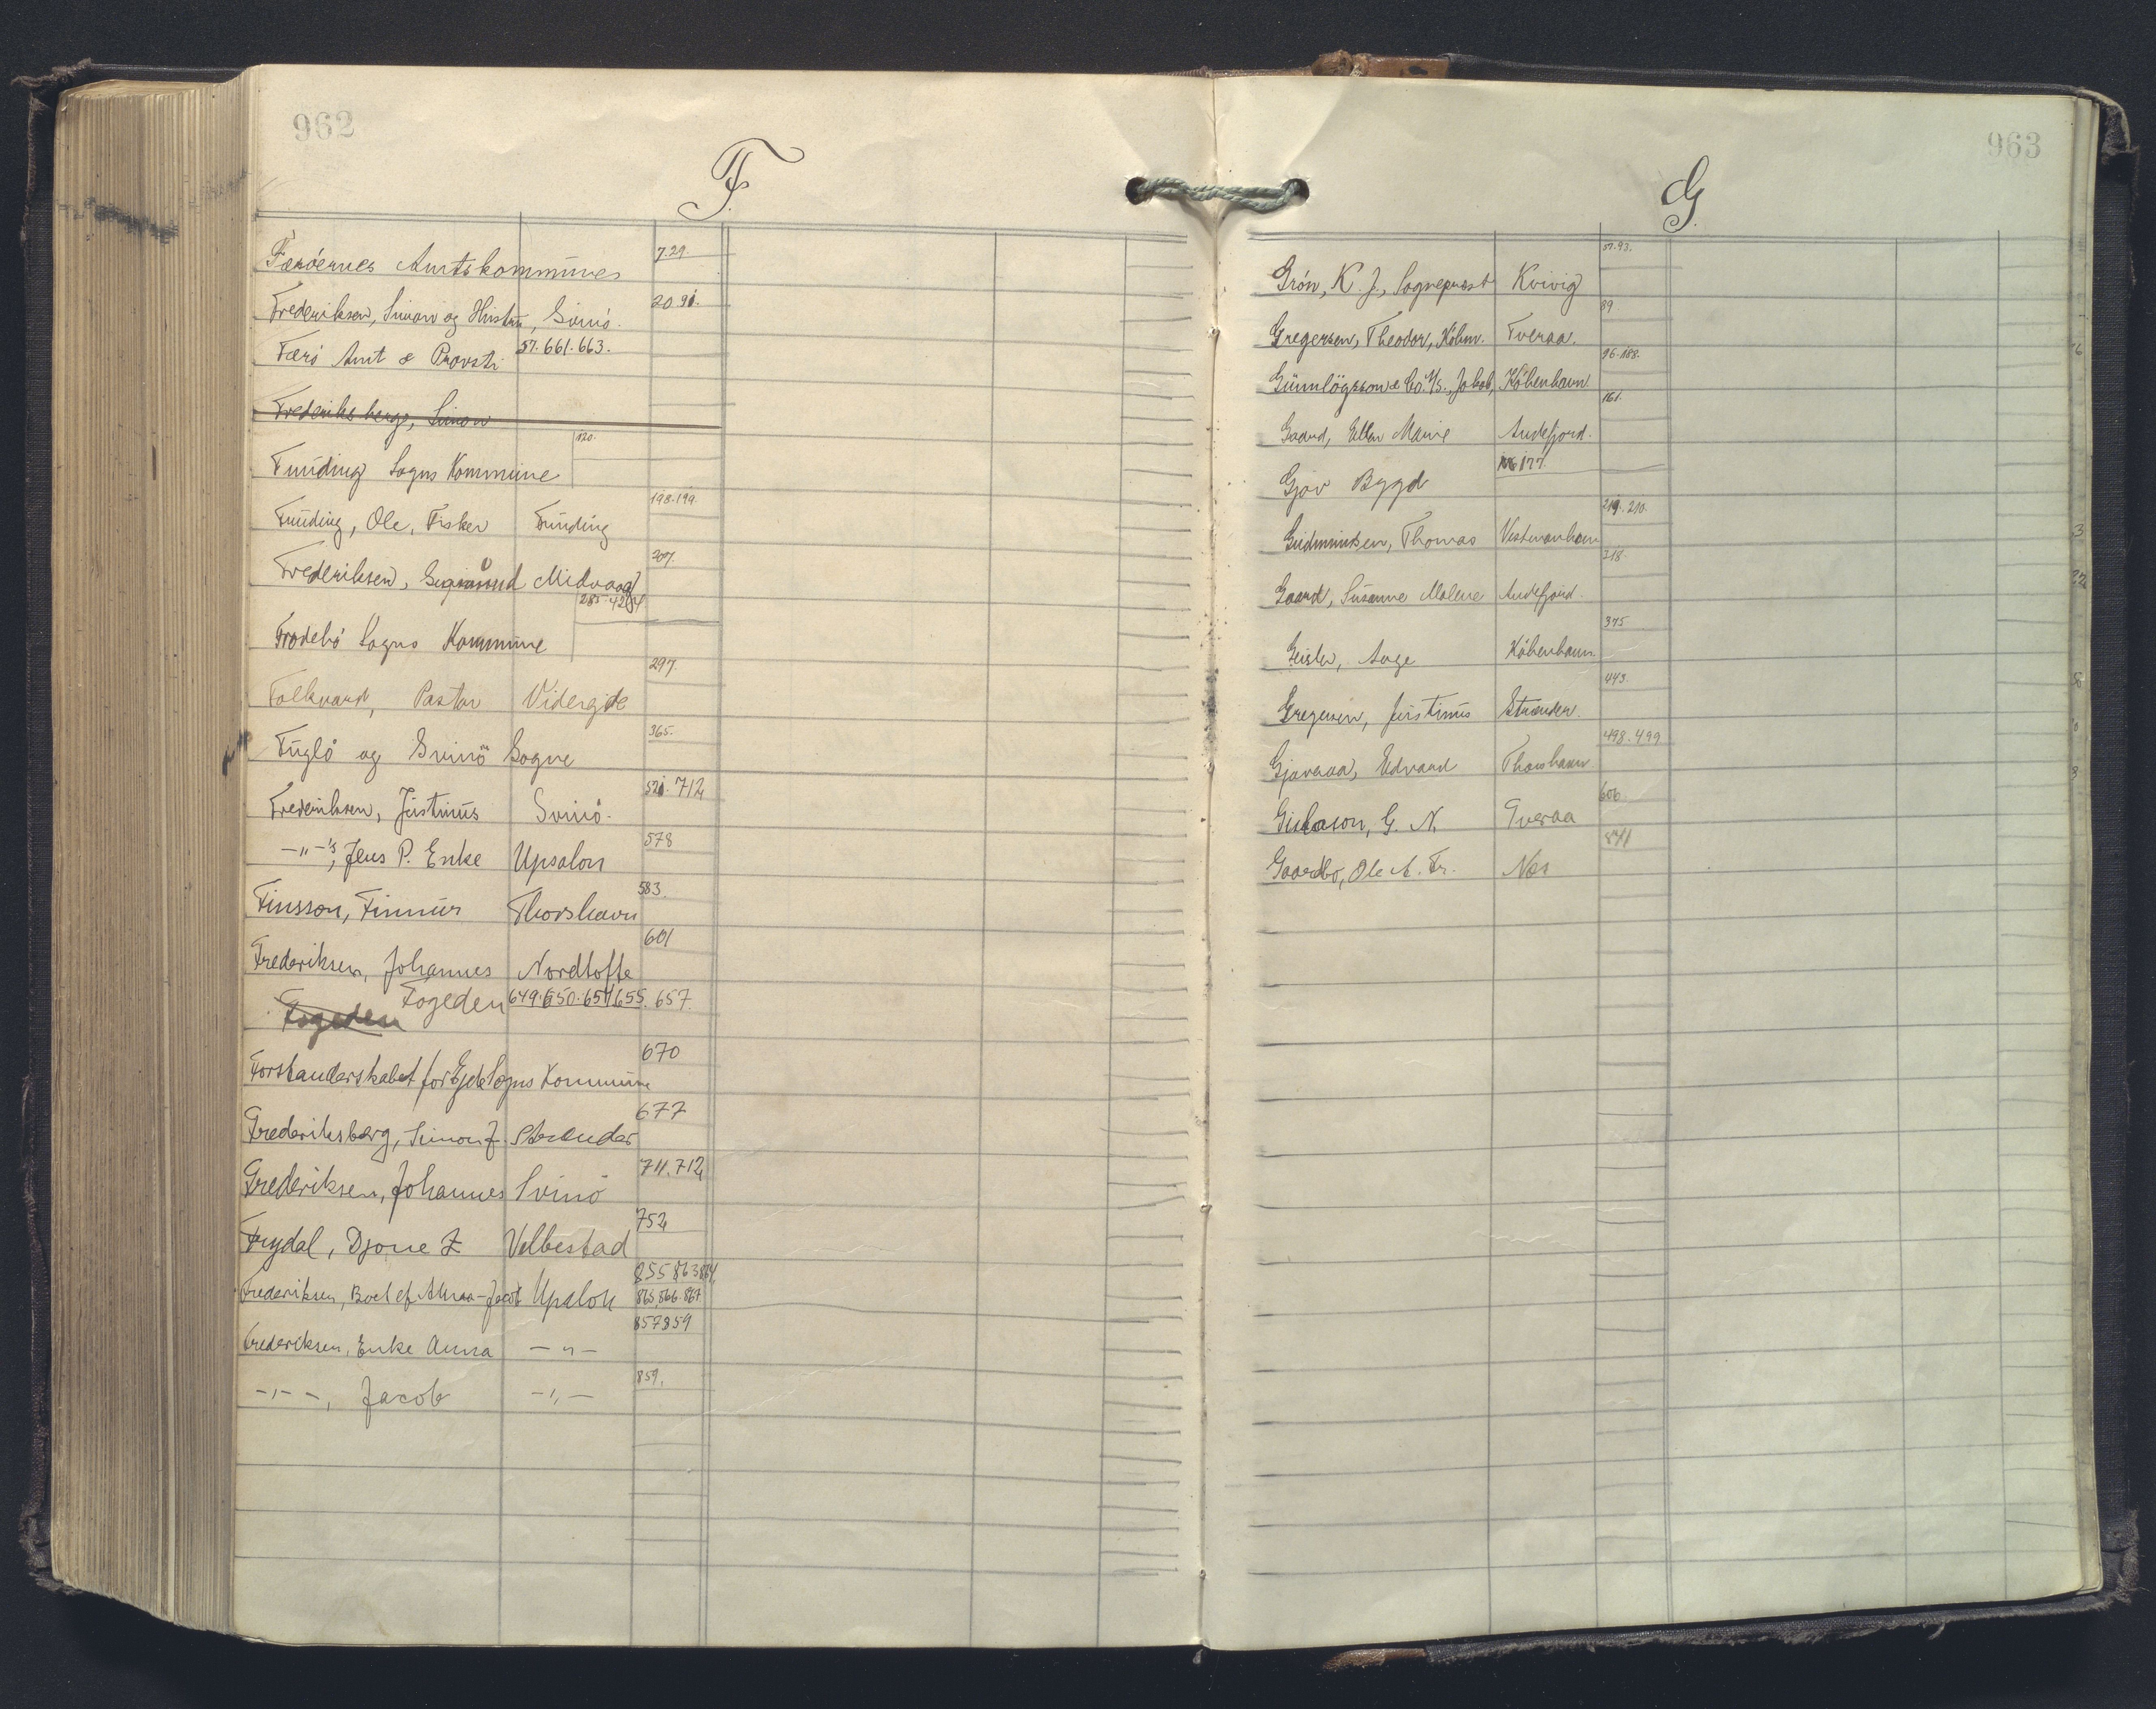 962
F.
Færöernes Amtskommunes 7.29.
Frederiksen, Simon og Hustru, Svinö. 20.91.
Færö Amt & Provsti 57.661.663.
Frederiksberg, Simon
Funding Sogns Kommune 120.
Funding, Ole, Fisker Funding 198.199.
Frederiksen, Sigmund Midvaag 207.
Frodebö Sogns Kommune 285.424
Folkvard, Pastor Videreide 297.
Fuglö og Svinö Sogne 365.
Frederiksen, Justinus Svinö. 521.712
—"—'s, Jens P. Enke Upsalon 578
Finsson, Finnur Thorshavn 583.
Frederiksen, Johannes Nordtofte 601
Fogeden
Fogeden 649.650.654/655.657.
Forstanderskabet for Ejde Sogns Kommune 670
Frederiksberg, Simon J. Strender 677
Frederiksen, Johannes Svinö 711.712
Frydal, Djone F. Velbestad 752
Frederiksen, Boel ef. Anna-Jacob Upsalon 855 863 864, 865,866.867
Frederiksen, Enke Anna —"— 857 859
—"—, Jacob —"— 859.
963
G.
Grön, K. J., Sognepræst Kvivig 57.93.
Gregersen, Theodor, Köbm. Tveraa. 89
Gunnlögsson & Co. A/s., Jakob, Köbenhavn 96.188.
Gaard, Ellen Marie Andefjord. 161.
Gjov Bygd 177.
Gudmundsen, Thomas Vestmanhavn 219.210.
Gaard, Susanne Malene Andefjord. 318.
Geisler, Aage Köbenhavn. 375
Gregersen, Justinus Strender. 443.
Gjoveraa, Edvard Thorshavn. 498.499
Gislason, G. N. Tveraa 606
Gaardbo, Ole A. Fr. Næs 841